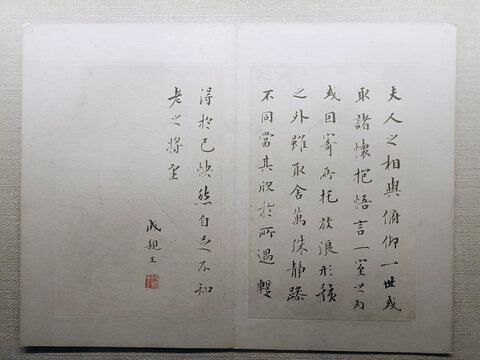 夫人之相與俯仰一世或
取諸懷抱悟言一室之内
或因寄所托放浪形骸
之外雖取舍萬殊静躁
不同當其欣於所遇蹔
得於己快然自足不知
老之將至
成親王